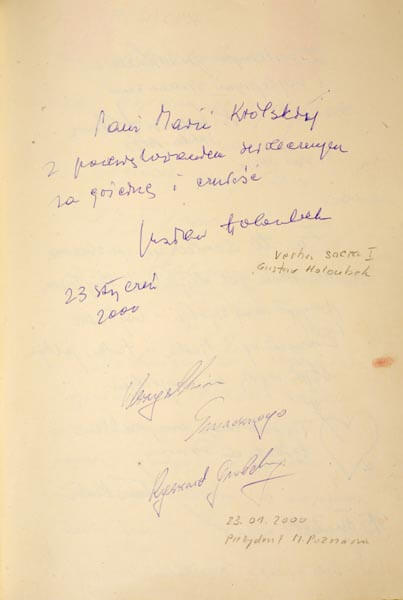 Pani Marii Królskiej
z podziękowaniem serdecznym
za gościnę i czułość
Gustaw Holoubek
Verba sacra I
Gustaw Holoubek
23 styczeń
2000
Wszystkim
Ryszard Grobelny
23.01.2000
Prezydent M. Poznania